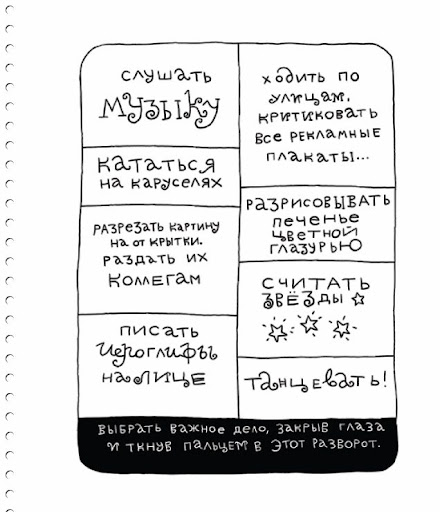 слушать
музыку
кататься
на каруселях
разрезать картину
на от крытки.
раздать их
коллегам
писать
иероглифы
на лице
ходить по
улицам.
критиковать
все рекламные
плакаты...
разрисовывать
печенье
цветной
глазурью
считать
звёзды
танцевать!
выбрать важное дело, закрыв глаза
и ткнув пальцем в этот разворот.